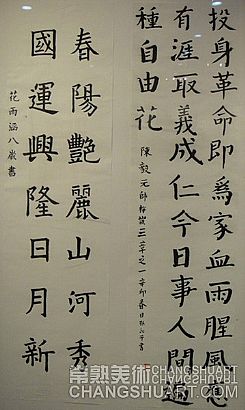 投身革命即爲家血雨腥風應
有涯取義成仁今日事人間遍
種自由花
陳毅元帥梅嶺三章之一辛卯春日書
春陽艷麗山河秀
國運興隆日月新
花雨涵八歲書
常熟美術
CHANGSHUART